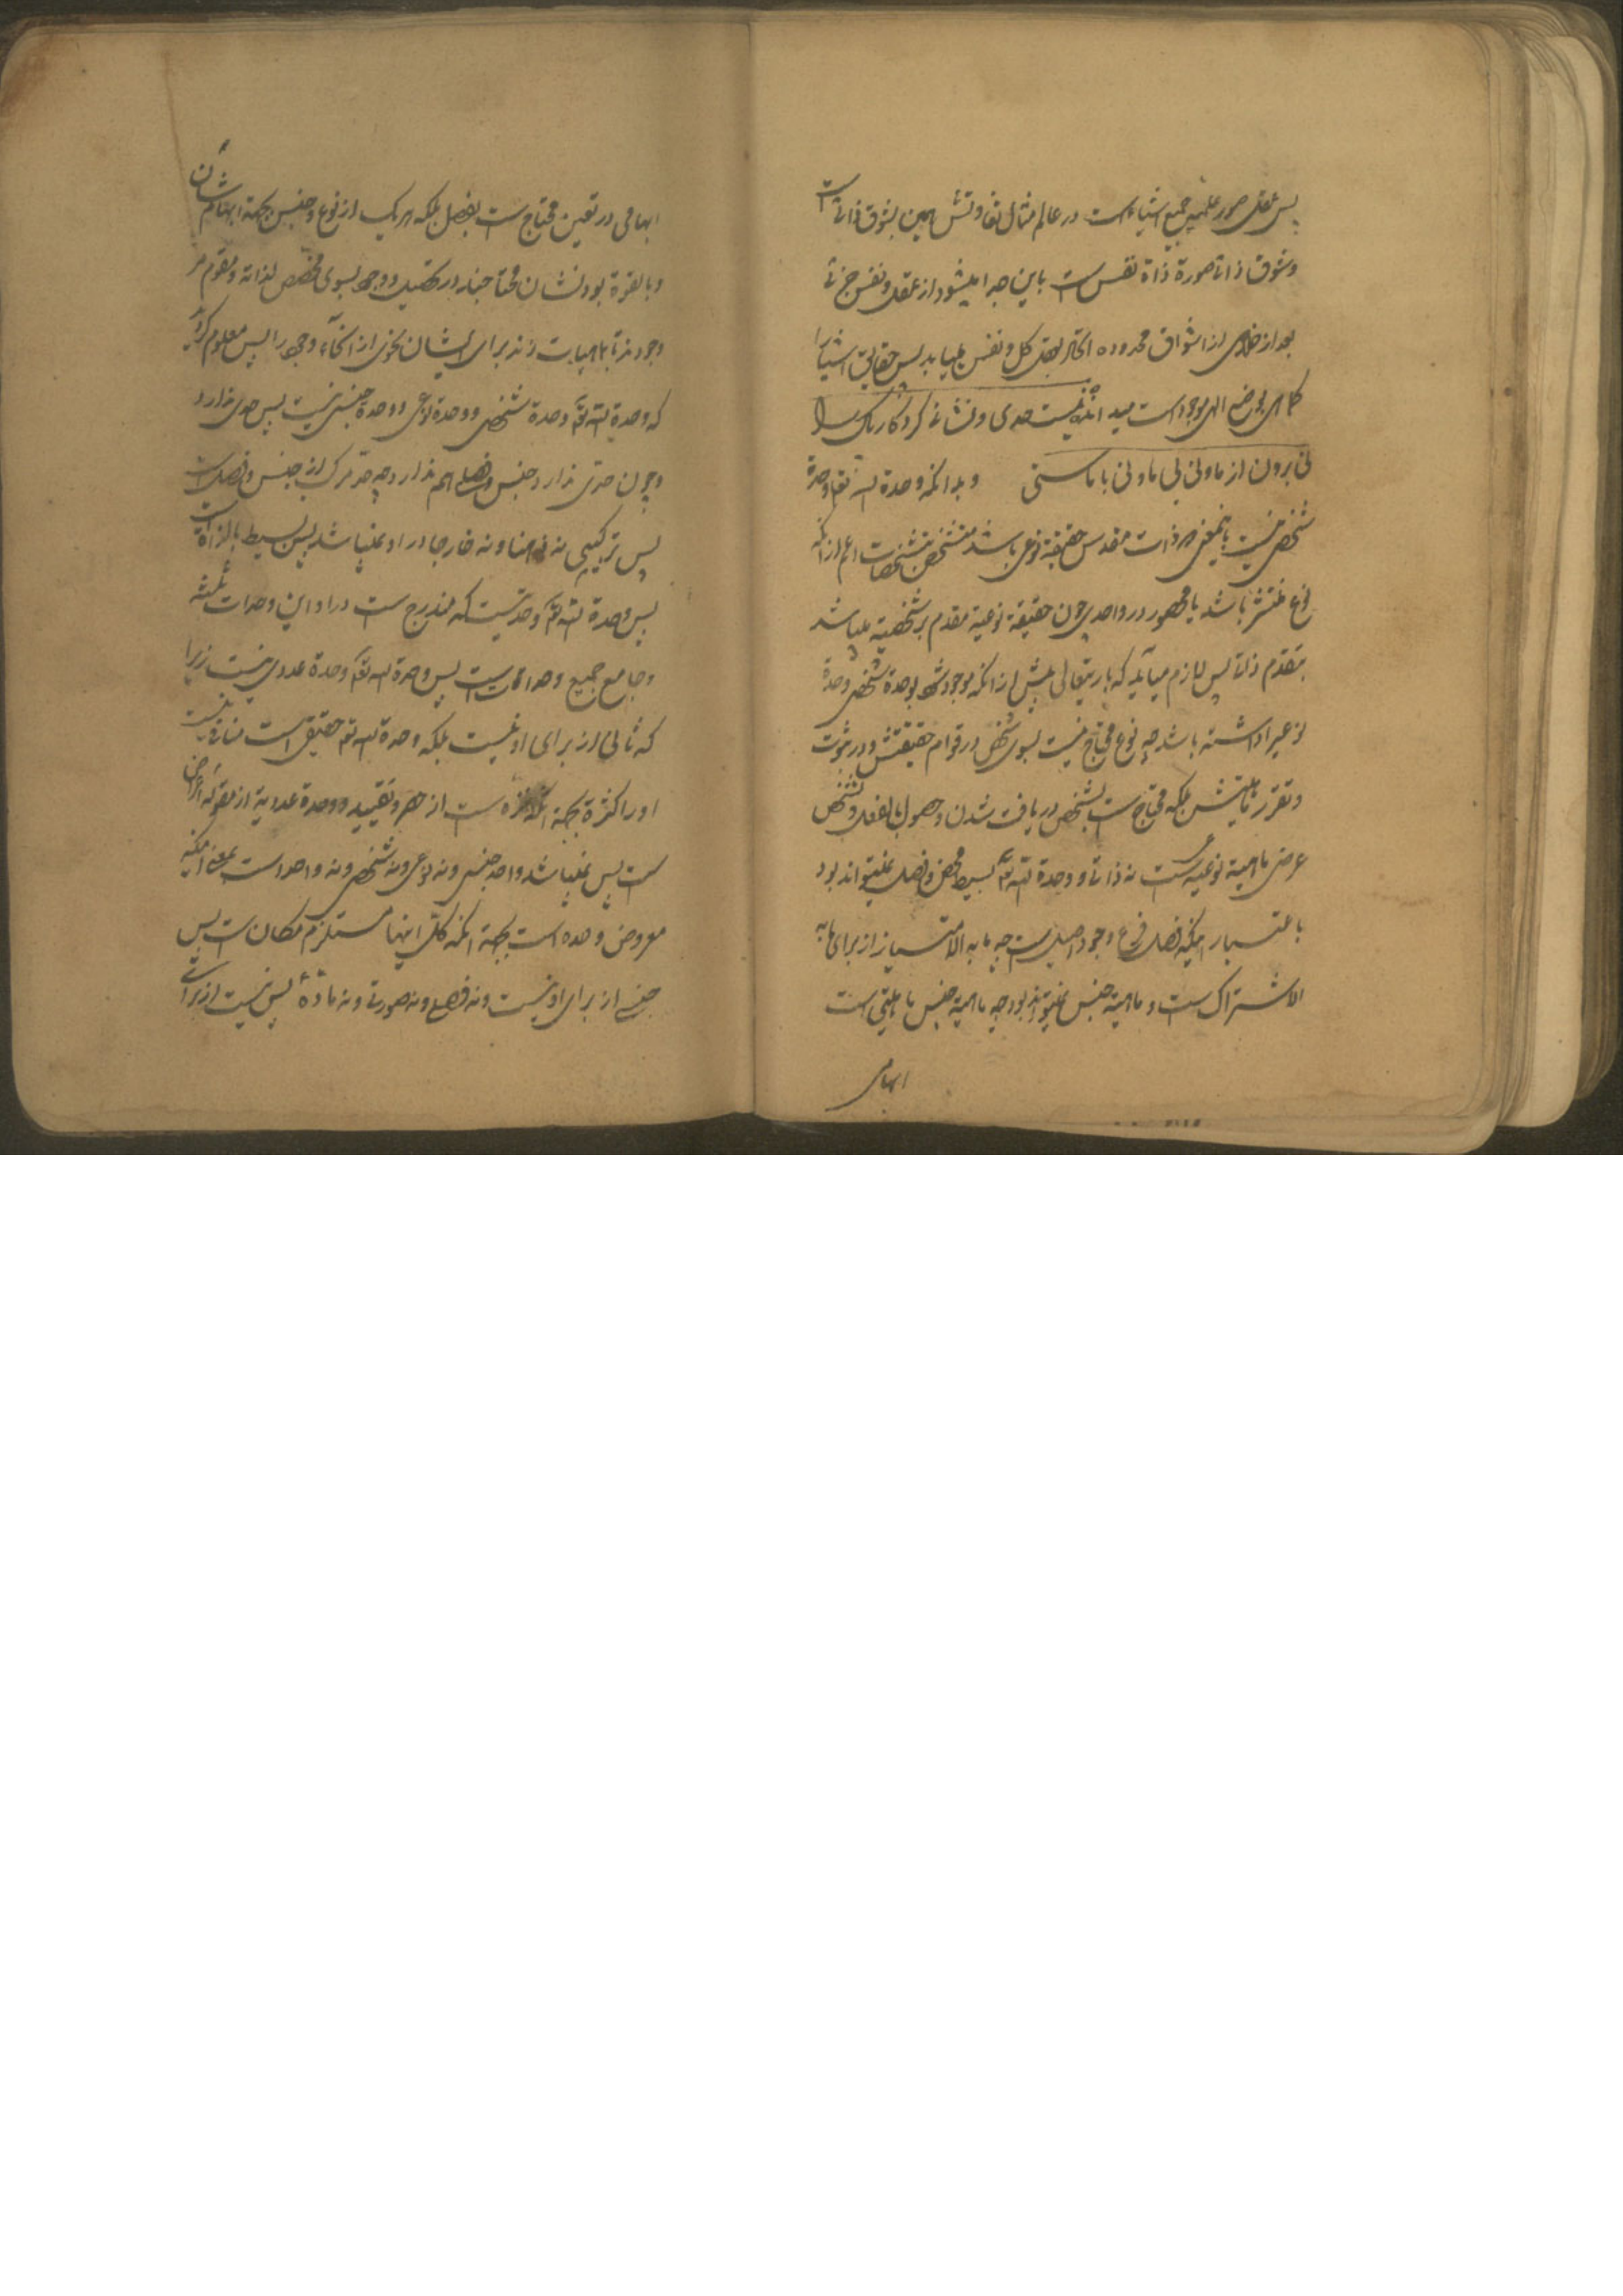 پس عقل صور علمیه جمیع اشیاء است در عالم مثال تفاوتش همین بشوق ذاتی است
و شوق ذاتا صورة ذاة نفس است باین جدا میشود از عقل و نفس جزئی
بعد از خلاصی از اشواق محدوده بعقل کل و نفس میاید پس حقایق اشیا را
کماهی بر وضع الهی موجود است میبد اندیست حدی و نشانی کردگار پاک را
نی برون از ما و نی بی ما و نی با ماستی و بدانکه وحدة الله تعا وحدة
شخصی نیست باینمعنی که ذات مقدس حقیقة نوعی باشد متشخص بتشخصات اعم از آنکه
نوع منتشر باشد یا محصور در واحدی چون حقیقة نوعیة مقدم بر شخصیة میباشد
بتقدم ذاتی پس لازم میآید که باریتعالی پیش از آنکه موجود شود بوحدة شخصی وحدة
نوعی را داشته باشد چه نوع محتاج نیست بسوی شخص در قوام حقیقتش و در ثبوت
و تقرر ماهیتش بلکه محتاج است بشخص در یافت شدن و حصول بالفعل و تشخص
عرضی ماهیة نوعیه است نه ذاتی و وحدة الله تعا بسیط محض و فصل نمیتواند بود
باعتبار اینکه فصل فرع وجود اصیل است چه ما به الامتیاز از برای ما به
الاشتراک است و ماهیة جنس نمیتواند بود چه ماهیة جنس ماهیتی است
ابهامی
ابهامی در تعین محتاج است بفصل بلکه هر یک از نوع و جنس بجهة ابهامشان
و بالقوة بودنشان محتاجند در تحصیل و وجود بسوی مخصص لذاته و مقوم مر
وجود نه ماهیات زند برای ایشان نحوی از انحاء وجود را پس معلوم گردید
که وحدة الله تعا وحدة شخصی و وحدة نوعی و وحدة جنسی نیست پس حدی ندارد
و چون حدی ندارد جنس و فصلی هم ندارد چه حد مرکب از جنس و فصل است
پس ترکیبی نه ذهنا و نه خارجا در او نمیباشد پس بسیط بالذاة است
پس وحدة الله تعا وحدتیست که مندرج است در او این وحدات ثلثه
و جامع جمیع وحدات است پس وحدة الله تعا وحدة عددی نیست زیرا
که ثانی از برای او نیست بلکه وحدة الله تعا حقیقی است منافی نیست
او را کثرة بجهة آنکه منزه است از حصر و تقیید و وحدة عددیة از مقوله اعراض
است پس نمیباشد واحد جنسی و نه نوعی و نه شخصی و نه واحد است بمعنی اینکه
معروض وحده است بجهة آنکه کل اینها مستلزم امکان است پس
جنسی از برای او نیست و نه فصلی و نه صورتی و نه مادة پس نیست از برای